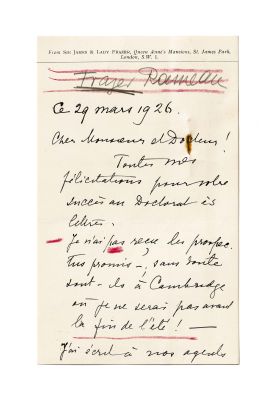 From Sir James & Lady Frazer, Queen Anne's Mansions, St. James Park,
London, S.W. 1.
Frazer Rameau
Ce 29 mars 1926.
Cher Monsieur et Docteur!
Toutes mes
félicitations pour votre
succès au Doctorat ès
lettres.
Je n'ai pas reçu les prospec-
tus promis—, sans doute
sont-ils à Cambridge
où je ne serai pas avant
la fin de l'été! —
J'ai écrit à nos agents